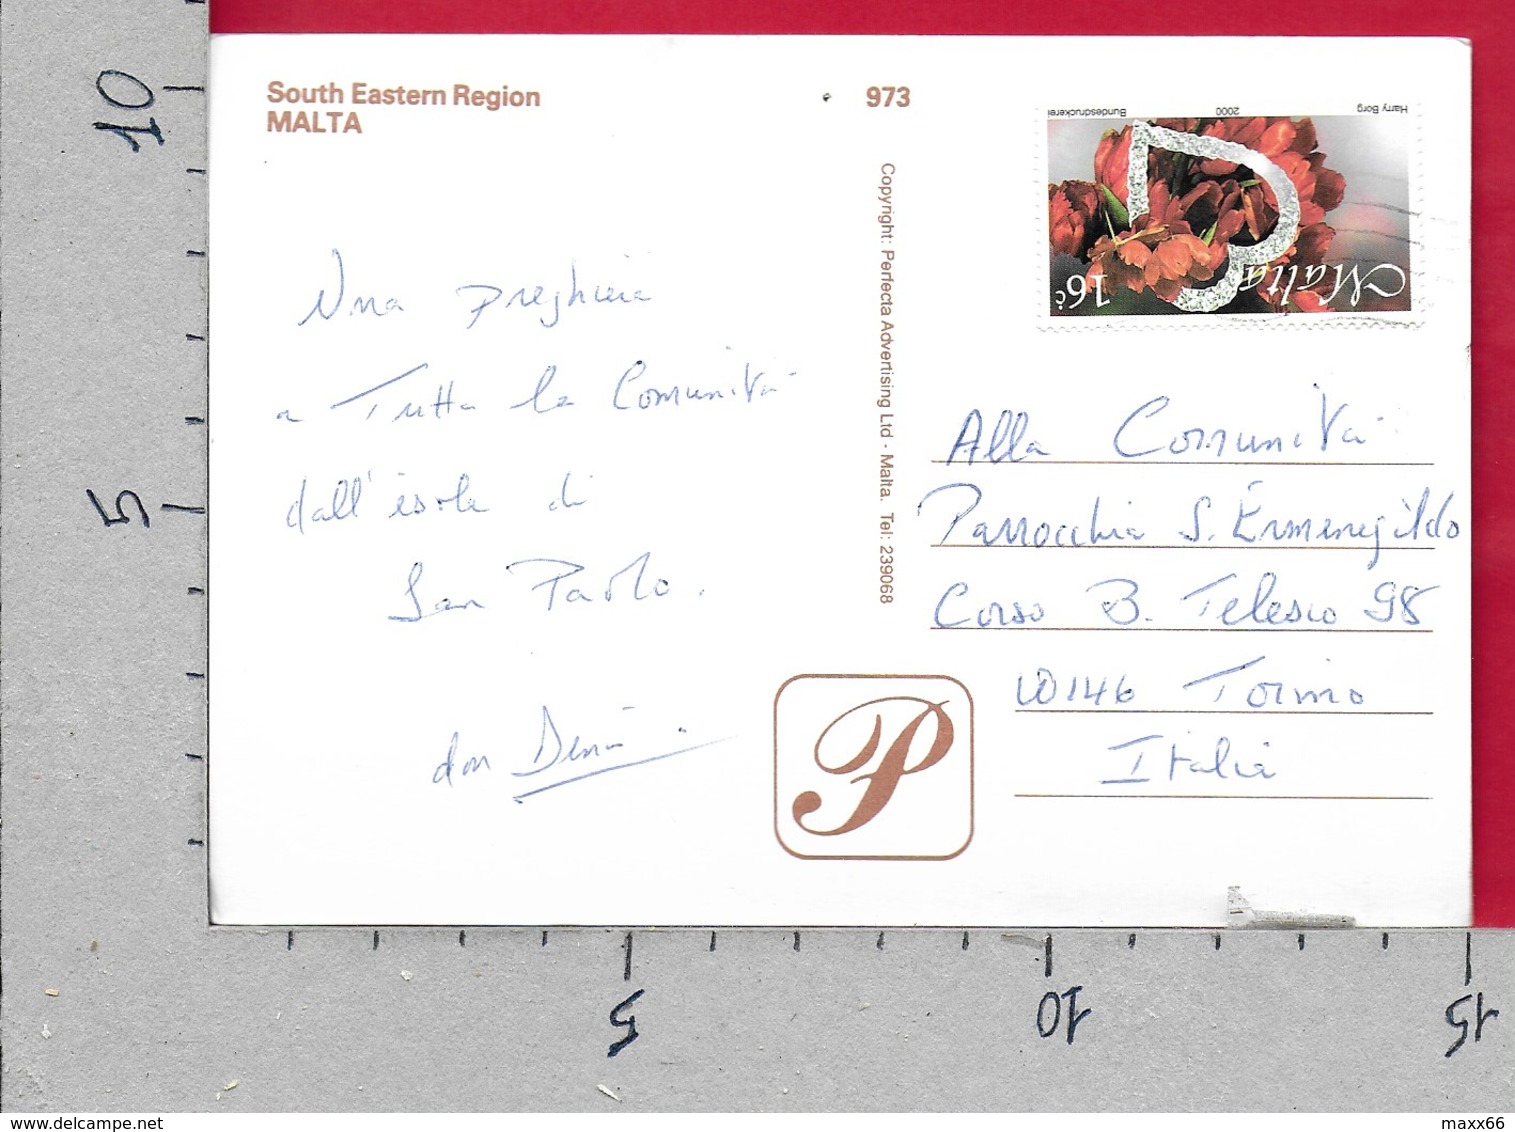 South Eastern Region
MALTA
973
Copyright: Perfecta Advertising Ltd - Malta. Tel: 239068
Harry Borg 2000 Bundesdruckerei
Malta 16c
Una preghiera
a Tutta la Comunità
dall'isola di
San Paolo.
don
Alla Comunità
Parrocchia S. Ermenegildo
Corso B. Telesio 98
10146 Torino
Italia
P
10
5
5
10
15
www.delcampe.net
maxx66